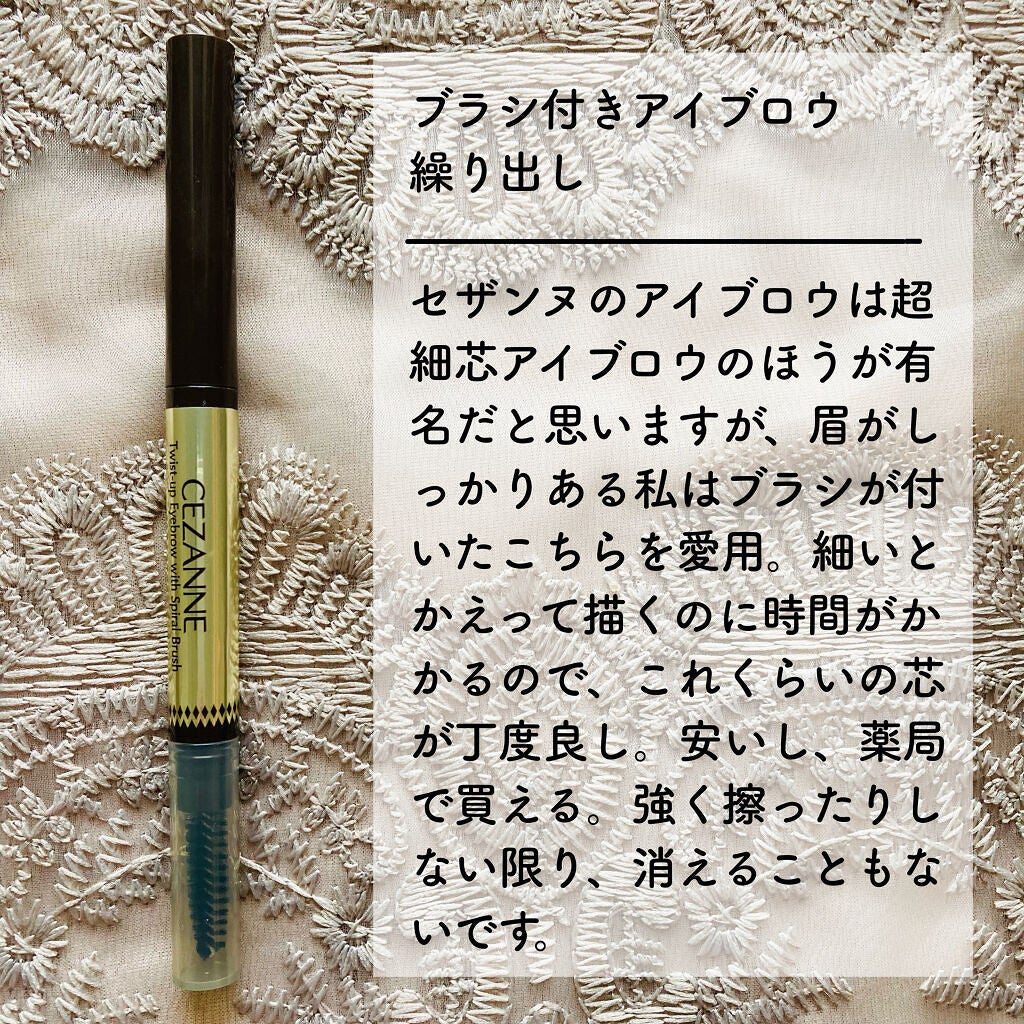 ブラシ付きアイブロウ
繰り出し
セザンヌのアイブロウは超
細芯アイブロウのほうが有
名だと思いますが、眉がし
っかりある私はブラシが付
いたこちらを愛用。細いと
かえって描くのに時間がか
かるので、これくらいの芯
が丁度良し。安いし、薬局
で買える。強く擦ったりし
ない限り、消えることもな
いです。
CEZANNE
Twist-up Eyebrow with Spiral Brush